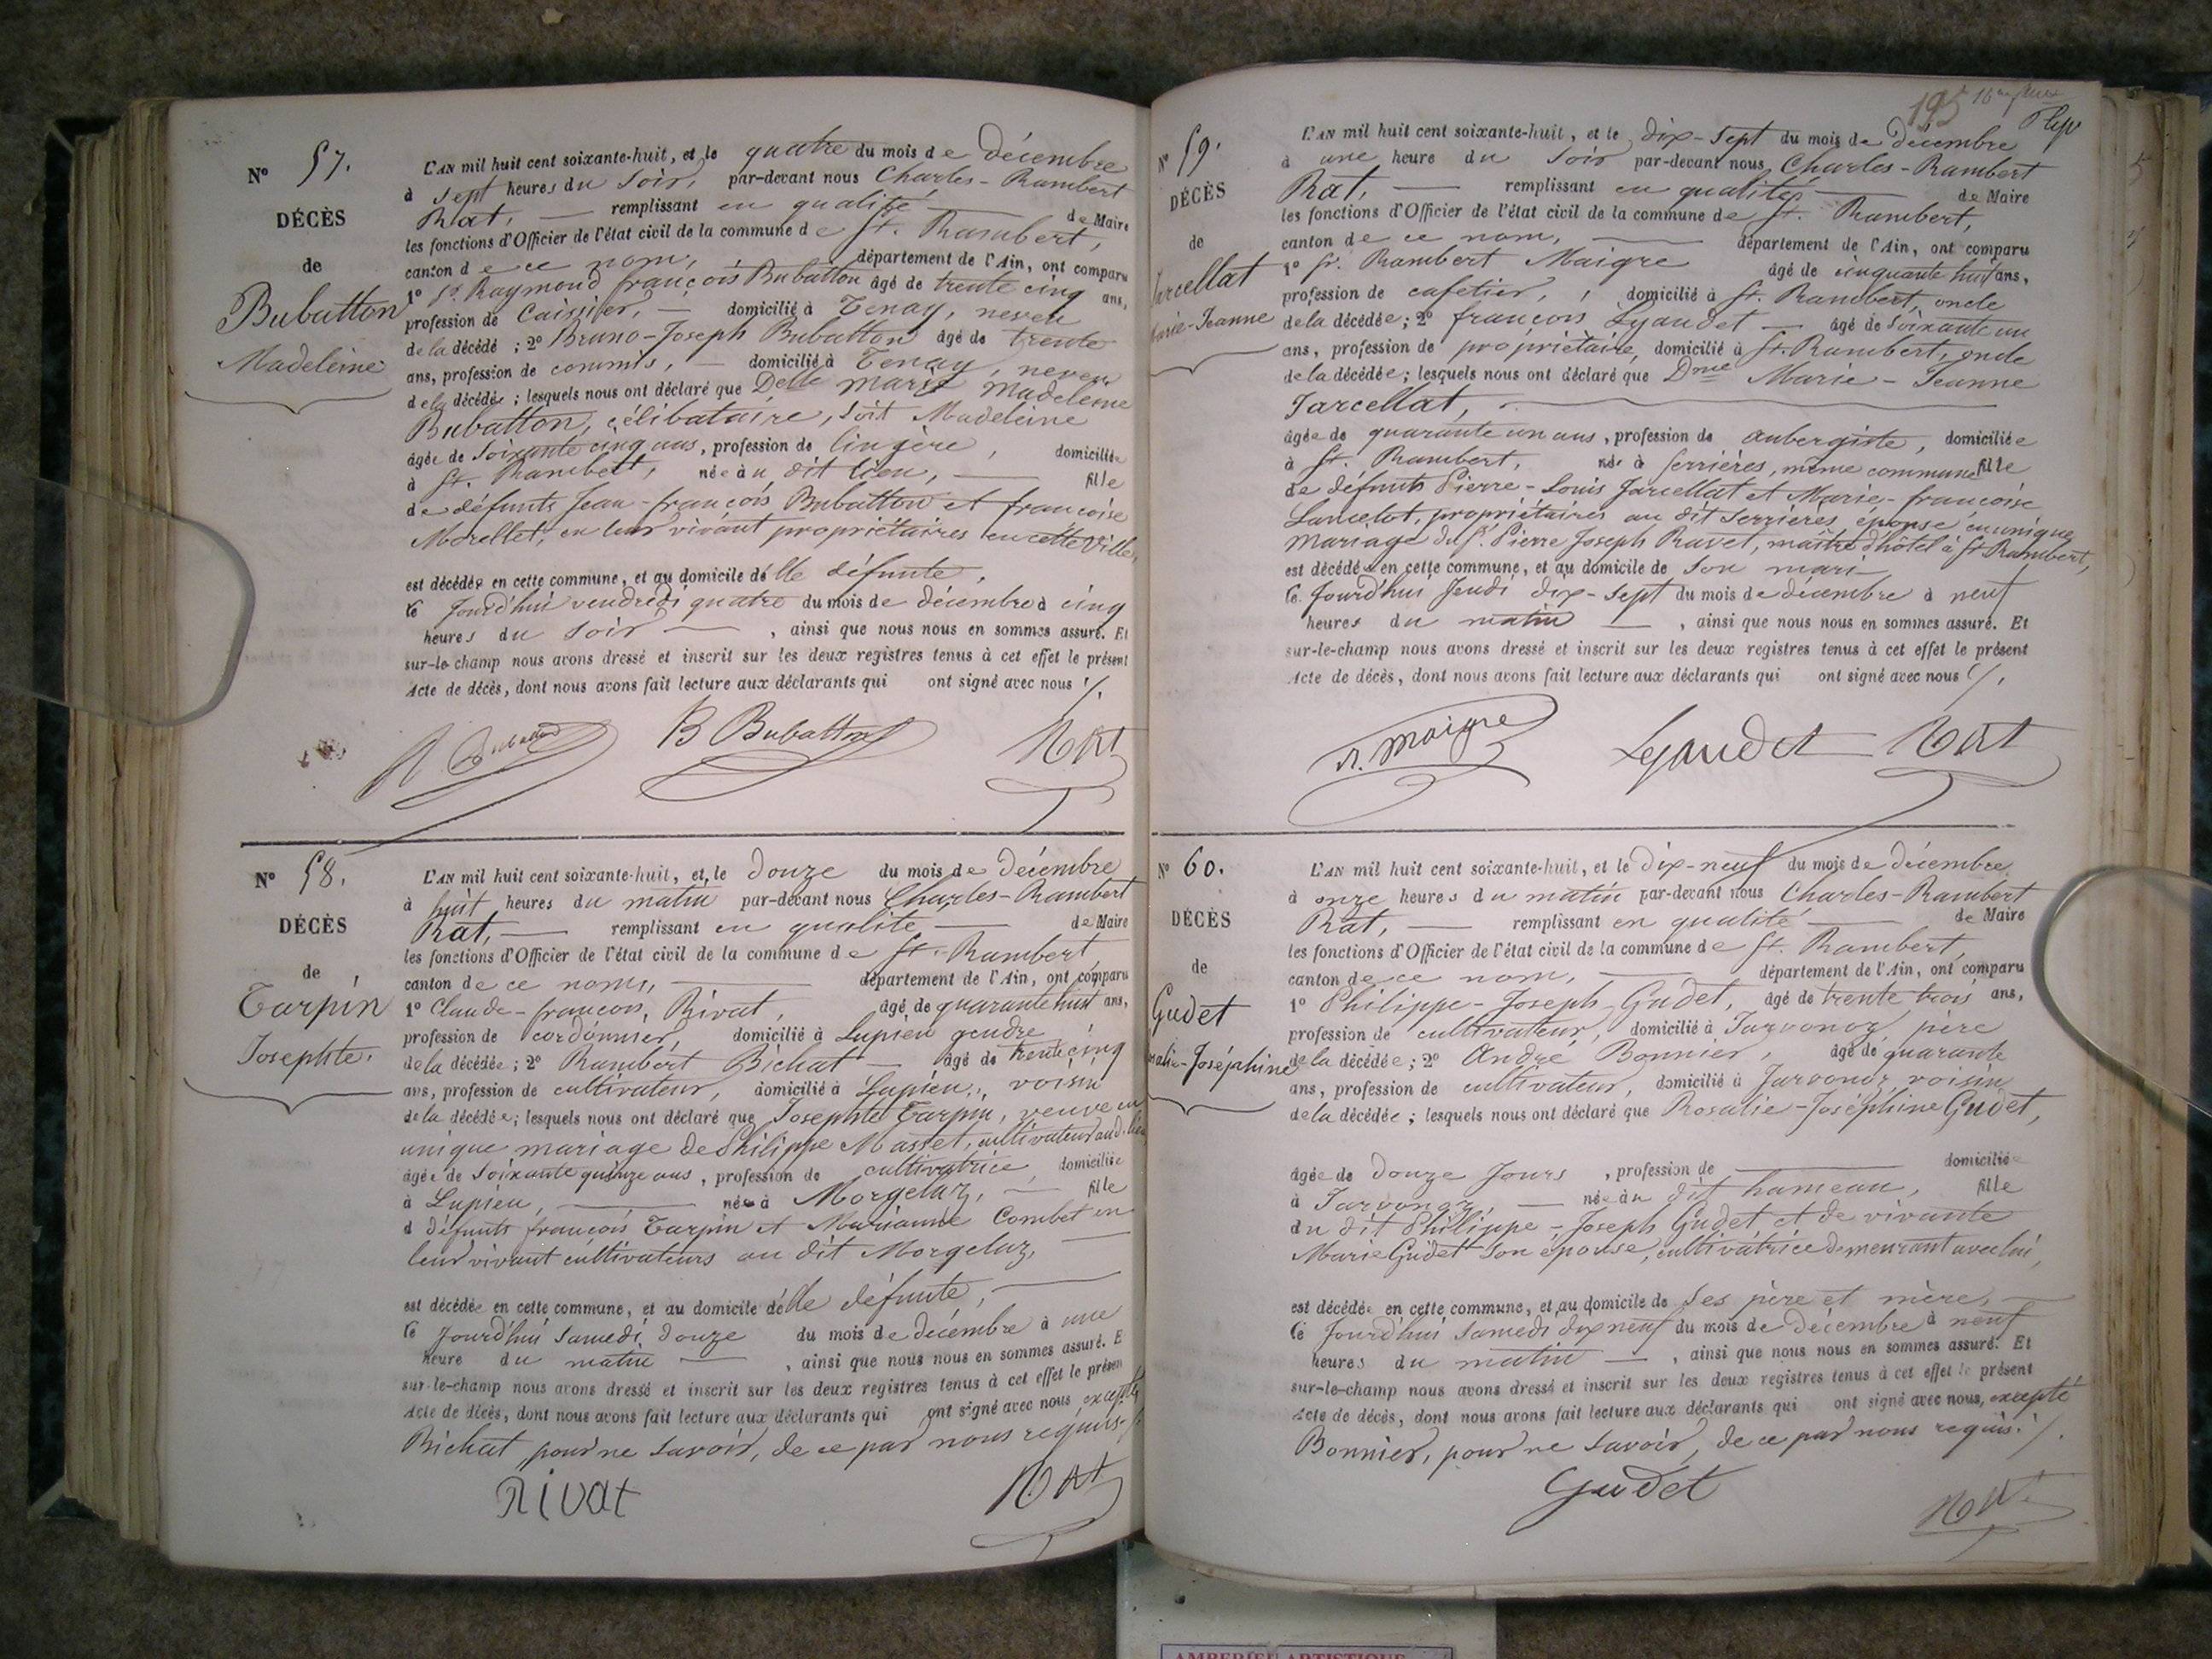 N° 57.
DÉCÈS
de
Bubatton
Madeleine
L'AN mil huit cent soixante-huit, et le quatre du mois de décembre
à sept heures du soir, par-devant nous Charles-Rambert
Rat, remplissant en qualité de Maire
les fonctions d'Officier de l'état civil de la commune de St. Rambert,
canton de ce nom, département de l'Ain, ont comparu
1° Sr. Raymond françois Bubatton âgé de trente cinq ans,
profession de Caissier, domicilié à Tenay, neveu
de la décédé ; 2° Bruno-Joseph Bubatton âgé de trente
ans, profession de commis, domicilié à Tenay, neveu
de la décédée ; lesquels nous ont déclaré que Delle Marie Madeleine
Bubatton, célibataire, soit Madeleine
âgée de soixante cinq ans, profession de lingère, domiciliée
à St. Rambert, née au dit lieu, fille
de défunts Jean-françois Bubatton et françoise
Morellet, en leur vivant propriétaires en cette Ville,
est décédée en cette commune, et au domicile de lle défunte,
le Jourd'hui vendredi quatre du mois de décembre à cinq
heures du soir, ainsi que nous nous en sommes assuré. Et
sur-le-champ nous avons dressé et inscrit sur les deux registres tenus à cet effet le présent
Acte de décès, dont nous avons fait lecture aux déclarants qui ont signé avec nous ./.
R Bubatton B Bubatton Rat
N° 58.
DÉCÈS
de
Tarpin
Josephte.
L'AN mil huit cent soixante-huit, et le douze du mois de décembre
à huit heures du matin par-devant nous Charles-Rambert
Rat, remplissant en qualité de Maire
les fonctions d'Officier de l'état civil de la commune de St. Rambert,
canton de ce nom, département de l'Ain, ont comparu
1° Claude-françois Rivat, âgé de quarante huit ans,
profession de cordonnier, domicilié à Lupieu gendre
de la décédée ; 2° Rambert Bichat âgé de trente cinq
ans, profession de cultivateur, domicilié à Lupieu, voisin
de la décédée ; lesquels nous ont déclaré que Josephte Tarpin, veuve en
unique mariage de Philippe Masset, cultivateur au d. lieu
âgée de soixante quinze ans, profession de cultivatrice, domiciliée
à Lupieu, née à Morgelaz, fille
d défunts françois Tarpin et Marianne Combet en
leur vivant cultivateurs au dit Morgelaz,
est décédée en cette commune, et au domicile de lle défunte,
le Jourd'hui samedi douze du mois de décembre à une
heure du matin, ainsi que nous nous en sommes assuré. E
sur-le-champ nous avons dressé et inscrit sur les deux registres tenus à cet effet le présen
Acte de décès, dont nous avons fait lecture aux déclarants qui ont signé avec nous excepté
Bichat, pour ne savoir, de ce par nous requis. /.
Rivat Rat
195
N° 59.
DÉCÈS
de
Jarcellat
Marie-Jeanne
L'AN mil huit cent soixante-huit, et le dix-sept du mois de décembre
à une heure du soir par-devant nous Charles-Rambert
Rat, remplissant en qualités de Maire
les fonctions d'Officier de l'état civil de la commune de St. Rambert,
canton de ce nom, département de l'Ain, ont comparu
1° Sr. Rambert Maigre âgé de cinquante huit ans,
profession de cafetier, domicilié à St. Rambert, oncle
de la décédée ; 2° françois Lyaudet âgé de soixante un
ans, profession de propriétaire, domicilié à St. Rambert, oncle
de la décédée ; lesquels nous ont déclaré que Dme Marie-Jeanne
Jarcellat,
âgée de quarante un ans, profession de aubergiste, domiciliée
à St. Rambert, née à Serrières, même commune fille
de défunts Pierre-Louis Jarcellat et Marie-françoise
Lancelot, propriétaires au dit Serrières, épouse en unique
mariage du Sr. Pierre Joseph Ravet, maître d'hôtel à St Rambert,
est décédée en cette commune, et au domicile de son mari
le Jourd'hui Jeudi dix-sept du mois de décembre à neuf
heures du matin, ainsi que nous nous en sommes assuré. Et
sur-le-champ nous avons dressé et inscrit sur les deux registres tenus à cet effet le présent
Acte de décès, dont nous avons fait lecture aux déclarants qui ont signé avec nous ./.
R. Maigre Lyaudet Rat
N° 60.
DÉCÈS
de
Gudet
Rosalie-Joséphine
L'AN mil huit cent soixante-huit, et le dix-neuf du mois de décembre
à onze heures du matin par-devant nous Charles-Rambert
Rat, remplissant en qualité de Maire
les fonctions d'Officier de l'état civil de la commune de St. Rambert,
canton de ce nom, département de l'Ain, ont comparu
1° Philippe-Joseph Gudet, âgé de trente trois ans,
profession de cultivateur, domicilié à Javornoz, père
de la décédée ; 2° André Bonnier, âgé de quarante
ans, profession de cultivateur, domicilié à Javornoz, voisin
de la décédée ; lesquels nous ont déclaré que Rosalie-Joséphine Gudet,
âgée de douze Jours, profession de domiciliée
à Javornoz, née au dit hameau, fille
du dit Philippe-Joseph Gudet et de vivante
Marie Gudet son épouse, cultivatrice demeurant avec lui,
est décédée en cette commune, et au domicile de ses père et mère,
le Jourd'hui samedi dix neuf du mois de décembre à neuf
heures du matin, ainsi que nous nous en sommes assuré. Et
sur-le-champ nous avons dressé et inscrit sur les deux registres tenus à cet effet le présent
Acte de décès, dont nous avons fait lecture aux déclarants qui ont signé avec nous, excepté
Bonnier, pour ne savoir, de ce par nous requis. /.
Gudet Rat
AMBERIEU ARTISTIQUE